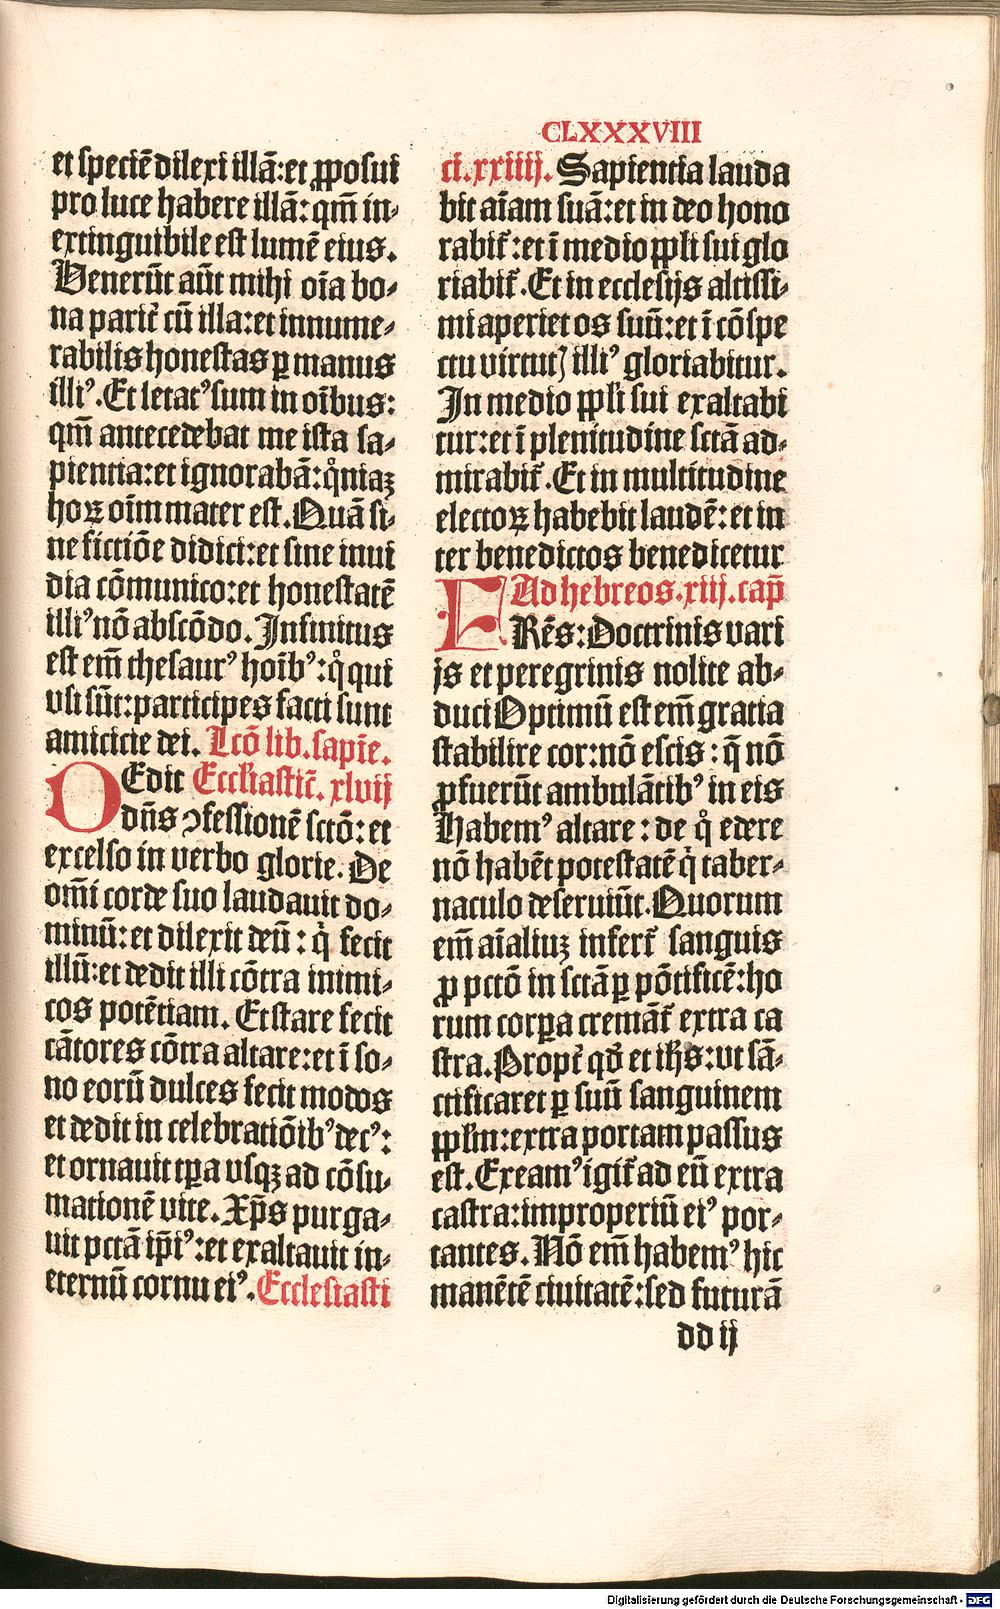 CLXXXVIII
et speciē dilexi illā: et ꝓposui
pro luce habere illā: qm̄ in⸗
extinguibile est lumē eius.
Venerūt aūt mihi oīa bo⸗
na parit̄ cū illa: et innume⸗
rabilis honestas ꝑ manus
illi⁹. Et letat⁹ sum in oībus:
qm̄ antecedebat me ista sa⸗
pientia: et ignorabā: qͦniaꝫ
hoꝝ oīm mater est. Quā si⸗
ne fictiōe didici: et sine inui
dia cōmunico: et honestatē
illi⁹ nō abscōdo. Infinitus
est em̄ thesaur⁹ hoīb⁹: qͦ qui
vsi sūt: participes facti sunt
amicicie dei. Lcō lib. sapīe.
DEdit Eccƚiastic̄. xlvij
dn̄s ↄfessionē sctō: et
excelso in verbo glorie. De
om̄i corde suo laudauit do⸗
minū: et dilexit deū: qͥ fecit
illū: et dedit illi cōtra inimi⸗
cos potētiam. Et stare fecit
cātores cōtra altare: et ī so⸗
no eorū dulces fecit modos
et dedit in celebratiōib⁹ dec⁹:
et ornauit tꝑa vsqꝫ ad cōsu⸗
mationē vite. Xp̄s purga⸗
uit pctā ip̄i⁹: et exaltauit in⸗
eternū cornu ei⁹. Ecclesiasti
ci. xxiiij. Sapientia lauda
bit aīam suā: et in deo hono
rabit̄: et ī medio ppƚi sui glo
riabit̄. Et in ecclesijs altissi⸗
mi aperiet os suū: et ī cōspe
ctu virtutꝭ illi⁹ gloriabitur.
In medio ppƚi sui exaltabi
tur: et ī plenitudine sctā ad⸗
mirabit̄. Et in multitudine
electoꝝ habebit laudē: et in
ter benedictos benedicetur
Ad hebreos. xiij. cap̄
FRēs: Doctrinis vari
js et peregrinis nolite ab⸗
duci Optimū est em̄ gratia
stabilire cor: nō escis: q̄ nō
ꝓfuerūt ambulātib⁹ in eis
Habem⁹ altare: de qͦ edere
nō habēt potestatē qͥ taber⸗
naculo deseruiūt. Quorum
em̄ aīaliuꝫ infert̄ sanguis
ꝓ pctō in sctā ꝑ pōtificē: ho
rum corꝑa cremāt̄ extra ca
stra. Propt̄ qd̄ et ihs̄: vt sā⸗
ctificaret ꝑ suū sanguinem
ppƚm: extra portam passus
est. Exeam⁹ igit̄ ad eū extra
castra: improperiū ei⁹ por⸗
tantes. Nō em̄ habem⁹ hic
manētē ciuitatē: sed futurā
dd ij
Digitalisierung gefördert durch die Deutsche Forschungsgemeinschaft - DFG